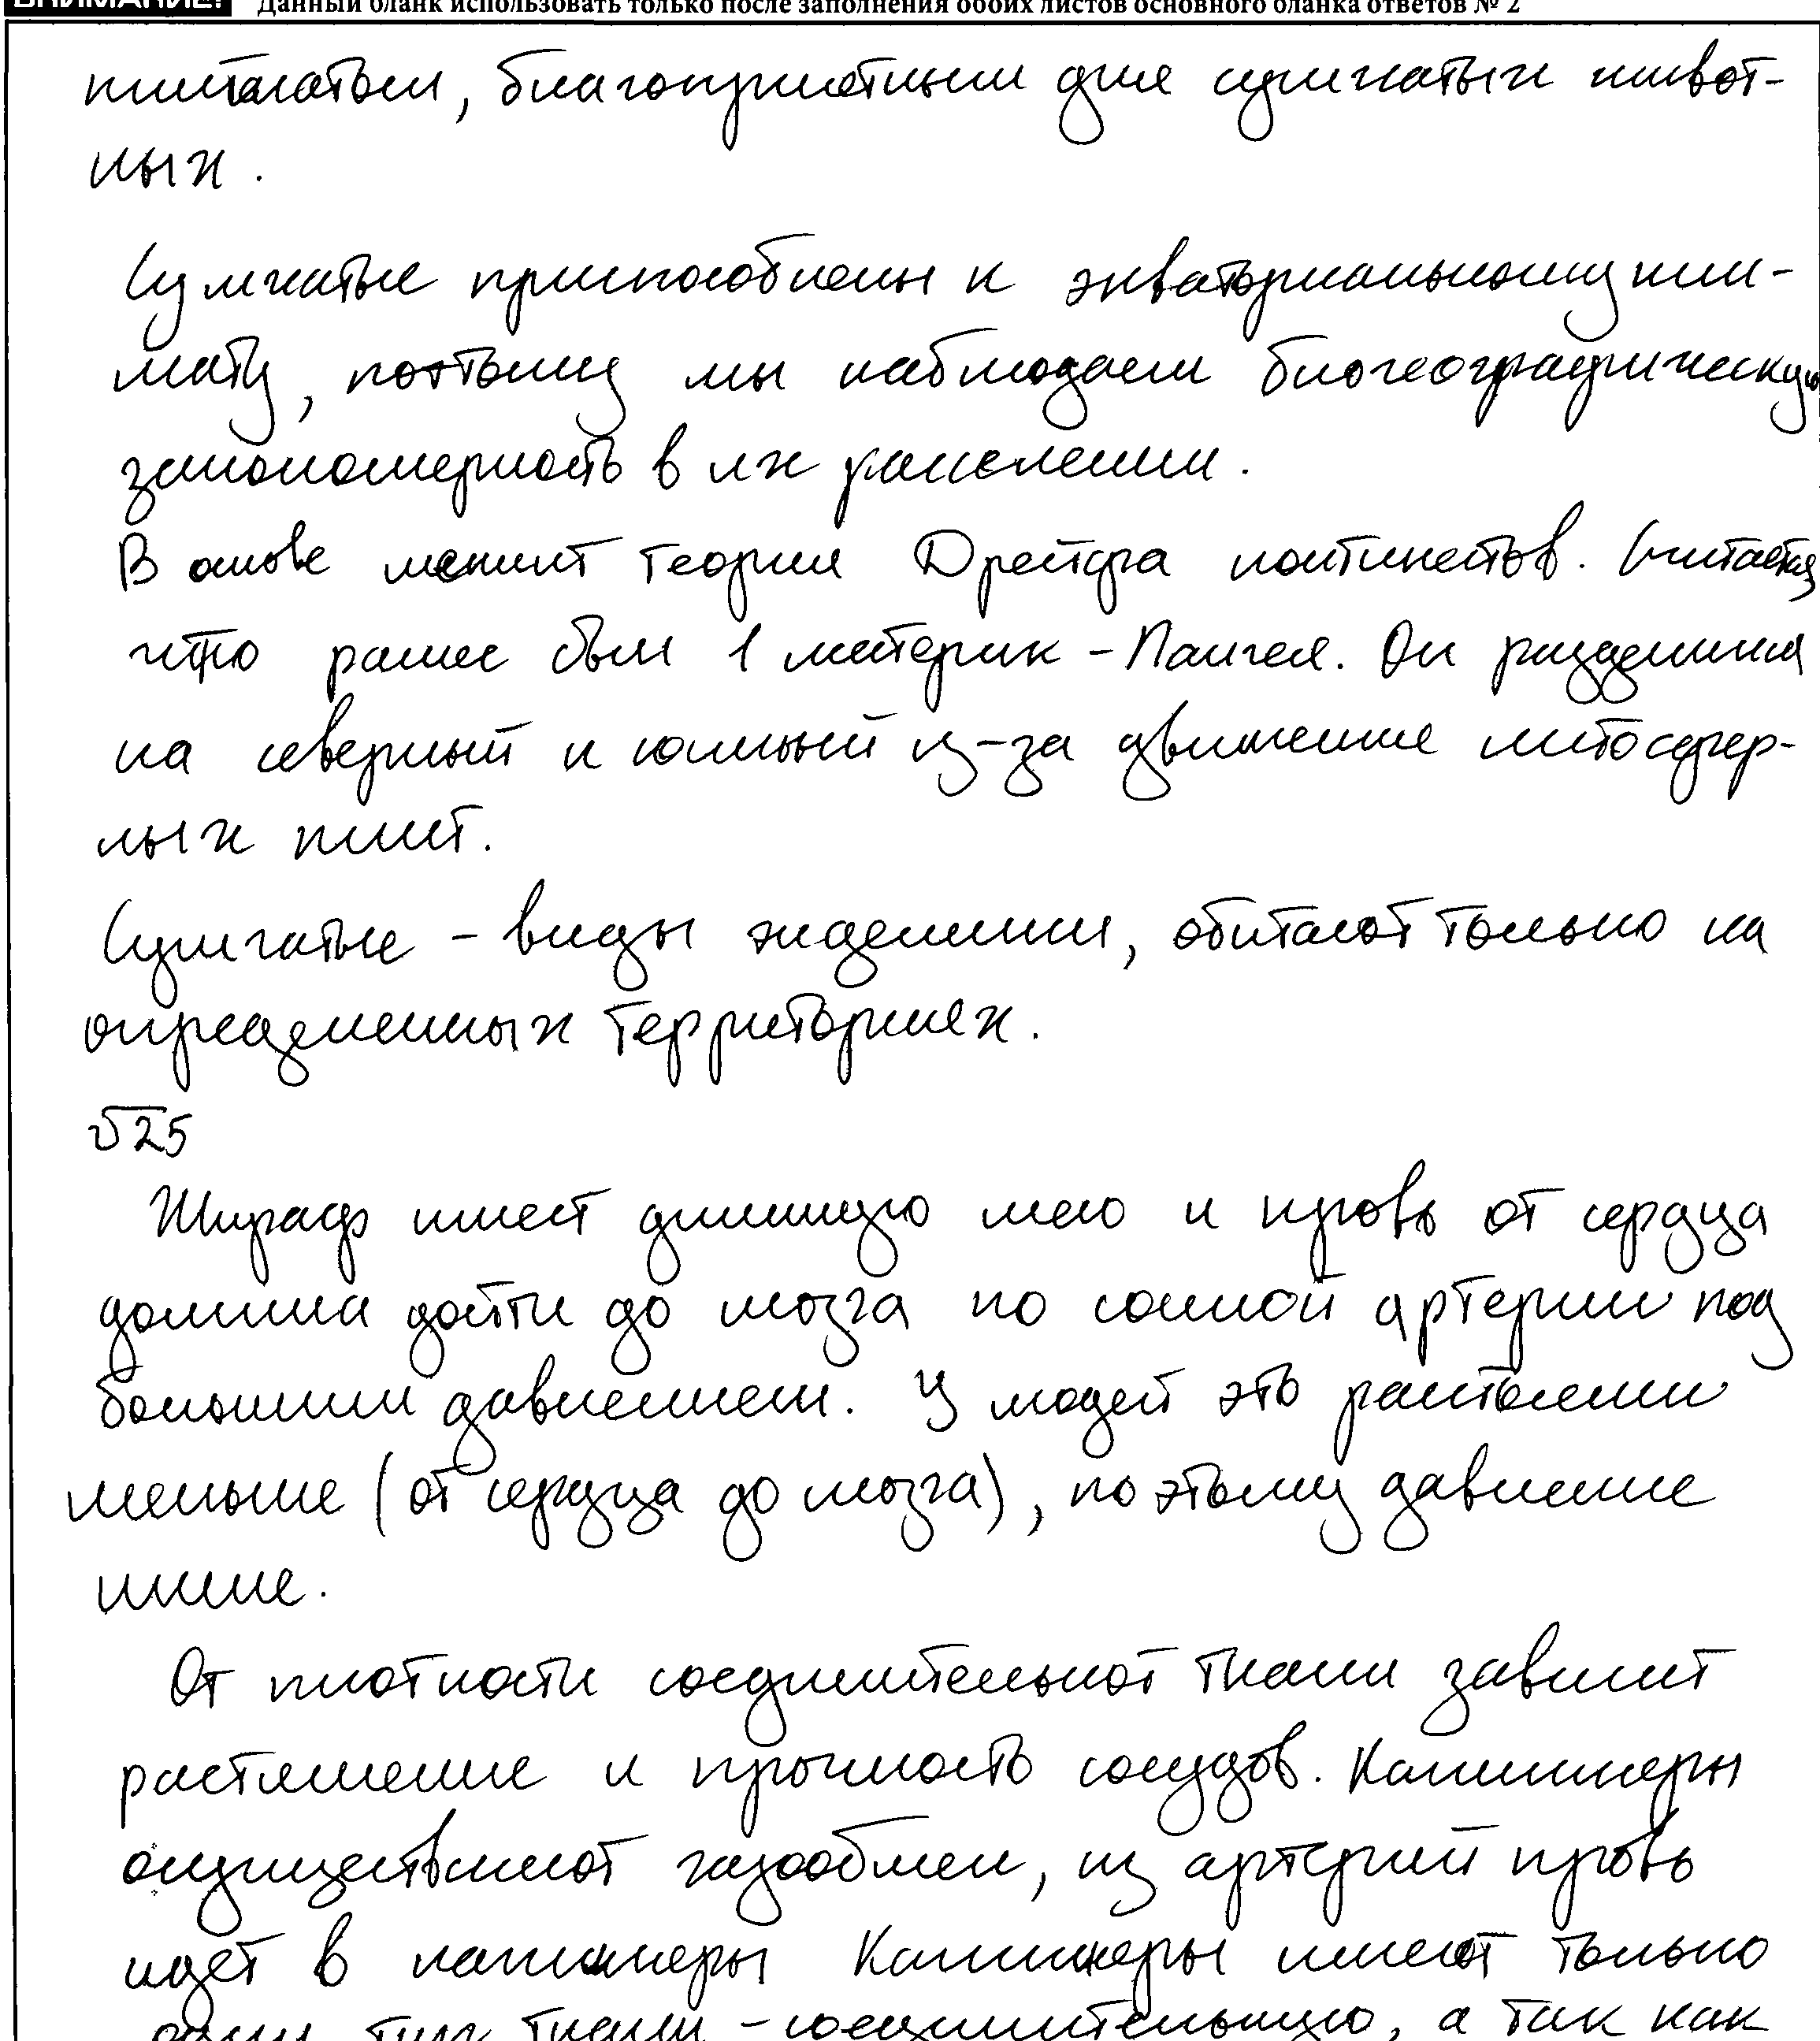 ВНИМАНИЕ! Данный бланк использовать только после заполнения обоих листов основного бланка ответов № 2
климатом, благоприятным для сумчатых живот-
ных.
Сумчатые приспособлены к экваториальному кли-
мату, поэтому мы наблюдаем биогеографическую
закономерность в их расселении.
В основе лежит теория Дрейфа континентов. Считается,
что ранее был 1 материк - Пангея. Он разделился
на северный и южный из-за движение литосфер-
ных плит.
Сумчатые - виды эндемики, обитают только на
определенных территориях.
№25
Жираф имеет длинную шею и кровь от сердца
должна дойти до мозга по сонной артерии под
большим давлением. У людей это расстоянии
меньше (от сердца до мозга), по этому давление
ниже.
От плотности соединительной ткани зависит
растяжение и прочность сосудов. Капилляры
осуществляют газообмен, из артерий кровь
идет в капилляры Капилляры имеют только
один тип ткани - соединительную, а так как